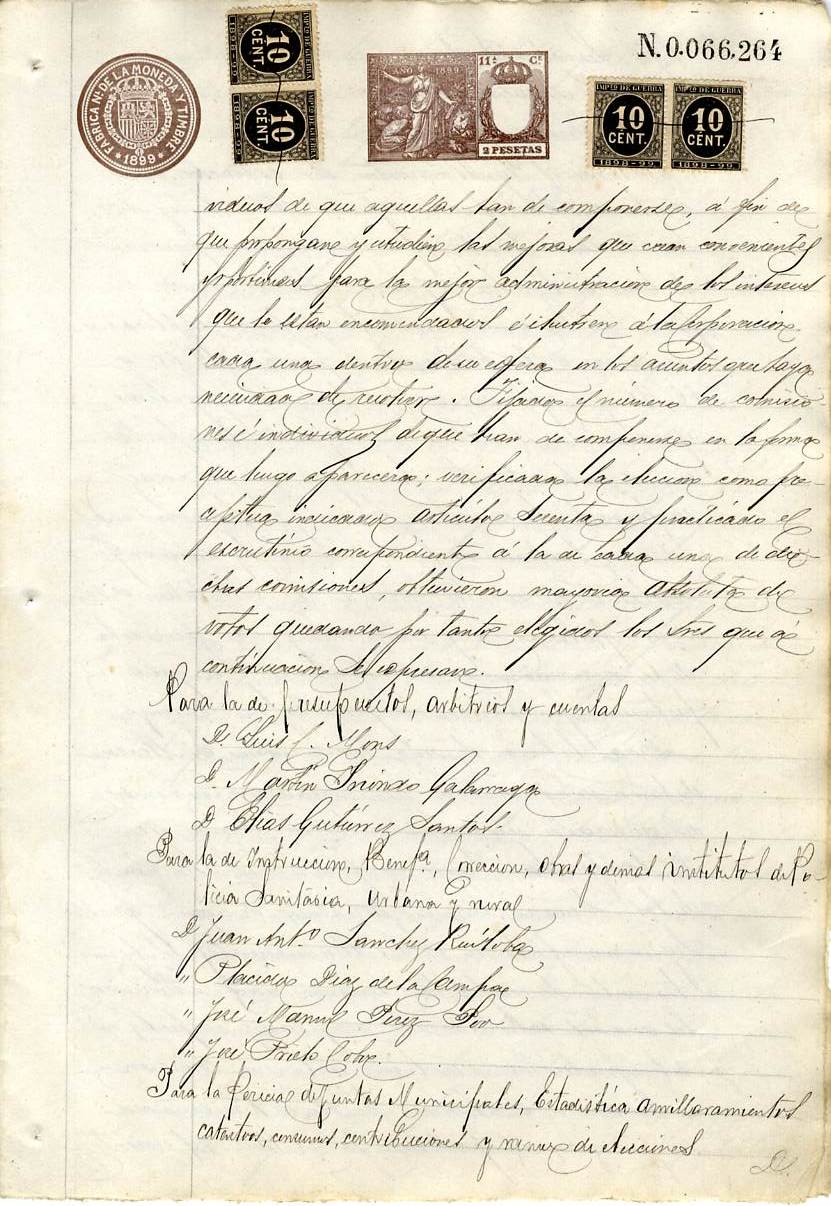 N.0.066.264
FABRICA Nl. DE LA MONEDA Y TIMBRE
1899
10 CENT.
1898-99
10 CENT.
1898-99
1899
11ª Cl.
2 PESETAS
IMPTO DE GUERRA
10 CENT.
1898-99
IMPTO DE GUERRA
10 CENT.
1898-99
viduos de que aquellas han de componerse, á fin de
que propongan y estudien las mejoras que crean convenientes
para la mejor administracion de los intereses
que le estan encomendados é ilustren á la Corporacion
cada una dentro de su esfera en los asuntos que haya
necesidad de resolver. Fijado el número de comisio-
nes é individuos de que han de componerse en la forma
que luego aparecera; verificada la eleccion como pre-
indicado artículo Sesenta y practicado el
escrutinio correspondiente á la de cada una de di-
chas comisiones, obtuvieron mayoria absoluta de
votos quedando por tanto elegidos los Sres que á
continuacion se espresan.
Para la de presupuestos, arbitrios y cuentas
D. Luis C. Mons
D. Martin Galarraga
D. Elias Gutierrez Santos.
Para la de Instruccion, Benefª, Correccion, obras y demas institutos de Po-
licia Sanitaria, urbana y rural
D Juan Antº Sanchez
" Placido Diaz de la Campa
" José Manuel Perez
" José Prieto
Para la Pericia de Juntas Municipales, Estadistica amillaramientos
catastros, consumos, contribuciones y ramo de elecciones
D.